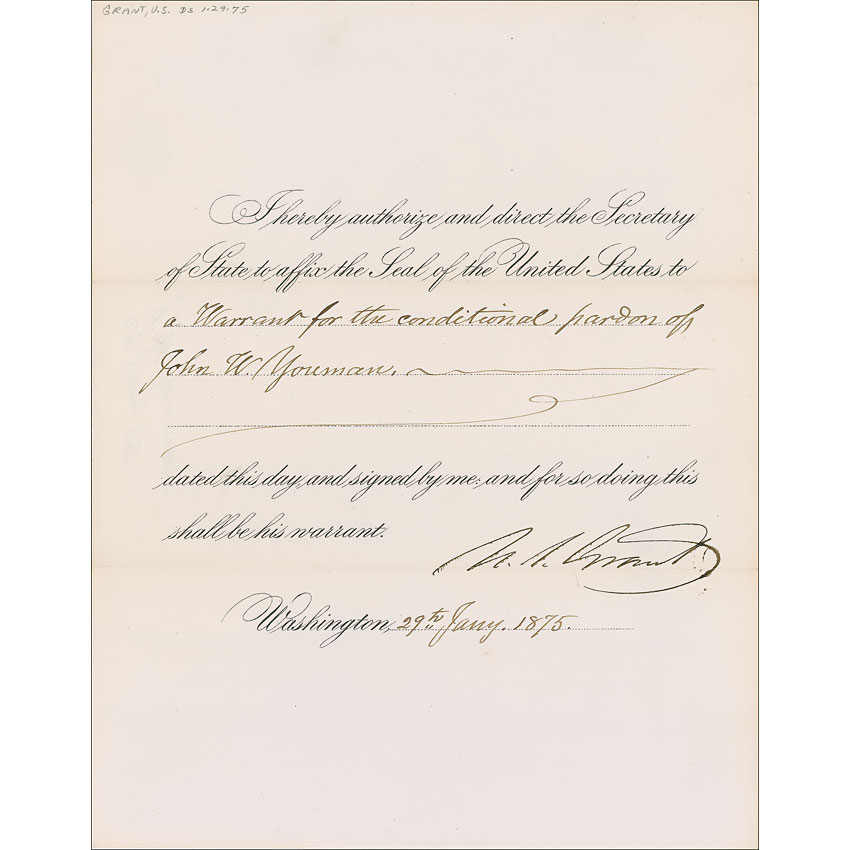 GRANT, U.S. DS 1·29·75
I hereby authorize and direct the Secretary
of State to affix the Seal of the United States to
a Warrant for the conditional pardon of
John W. Youman.
dated this day, and signed by me: and for so doing this
shall be his warrant.
U. S. Grant
Washington, 29th Jany. 1875.